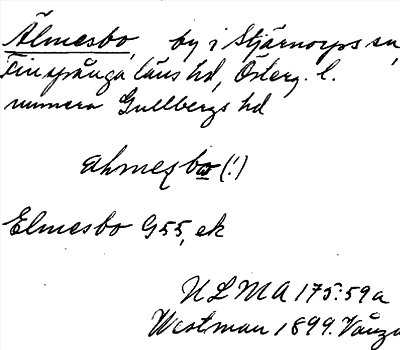 Älmesbo, by i Stjärnorps sn,
Finspånga läns hd, Österg. l.
numera Gullbergs hd
ahmesbo (!)
Elmesbo G55, ek
ULMA 175:59a
Westman 1899. Vånga